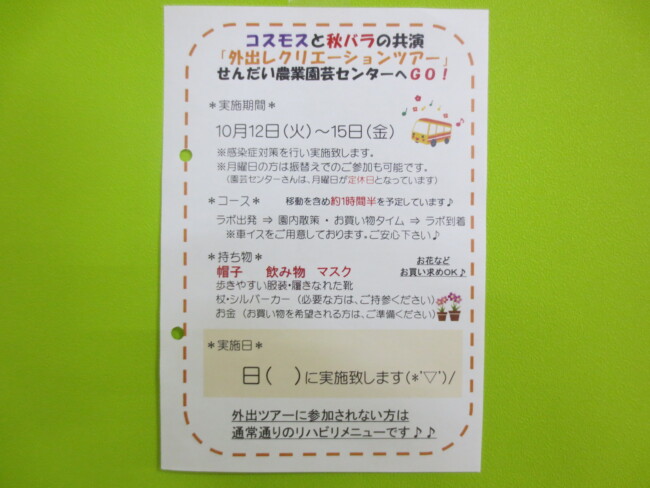 コスモスと秋バラの共演
「外出レクリエーションツアー」
せんだい農業園芸センターへGO!
＊実施期間＊
10月12日(火)～15日(金)
※感染症対策を行い実施致します。
※月曜日の方は振替えでのご参加も可能です。
(園芸センターさんは、月曜日が定休日となっています)
＊コース＊ 移動を含め約1時間半を予定しています♪
ラボ出発 ⇒ 園内散策・お買い物タイム ⇒ ラボ到着
※車イスをご用意しております。ご安心下さい♪
＊持ち物＊
帽子 飲み物 マスク
お花など
お買い求めOK♪
歩きやすい服装・履きなれた靴
杖・シルバーカー (必要な方は、ご持参ください)
お金 (お買い物を希望される方は、ご準備ください)
＊実施日＊
日( )に実施致します(*'▽')/
外出ツアーに参加されない方は
通常通りのリハビリメニューです♪♪